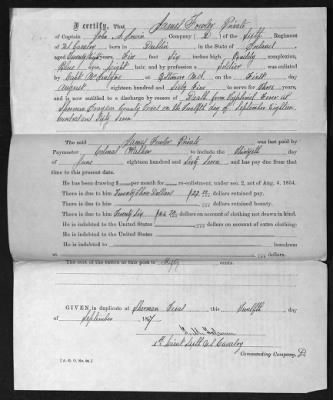 I certify, That James Fowler Private
of Captain John A. Irwin Company ( D ) of the Sixth Regiment
of U S Cavalry, born in Dublin in the State of Ireland
aged Twenty Eight years, Five feet Six inches high, Ruddy complexion,
Blue eyes, Light hair, and by profession a Soldier was enlisted
by Capt at Baltimore Md. on the First day
August eighteen hundred and Sixty Five to serve Three years,
and is now entitled to a discharge by reason of Death from Typhoid Fever at
Sherman Grayson County Texas on the Twelfth of September Eighteen
hundred and Sixty Seven
The said James Fowler Private was last paid by
Paymaster Colonel to include the Thirtieth day of
June eighteen hundred and Sixty Seven and has pay due from that
time to the present date.
He has been drawing $ per month for re-enlistment, under sec. 2, act of Aug. 4, 1854.
There is due to him Twenty Three Dollars dollars retained pay.
There is due to him dollars retained bounty.
There is due to him Twenty Six dollars on account of clothing not drawn in kind.
He is indebted to the United States dollars on account of extra clothing.
He is indebted to the United States
He is indebted to laundress
at dollars.
The cost of the ration at this post is Fifty cents.
GIVEN in duplicate at Sherman Texas this Twelfth day
of September 1867
1st Lieut Sixth U S Cavalry
Commanding Company, D
[A. G. O. No. 94.]